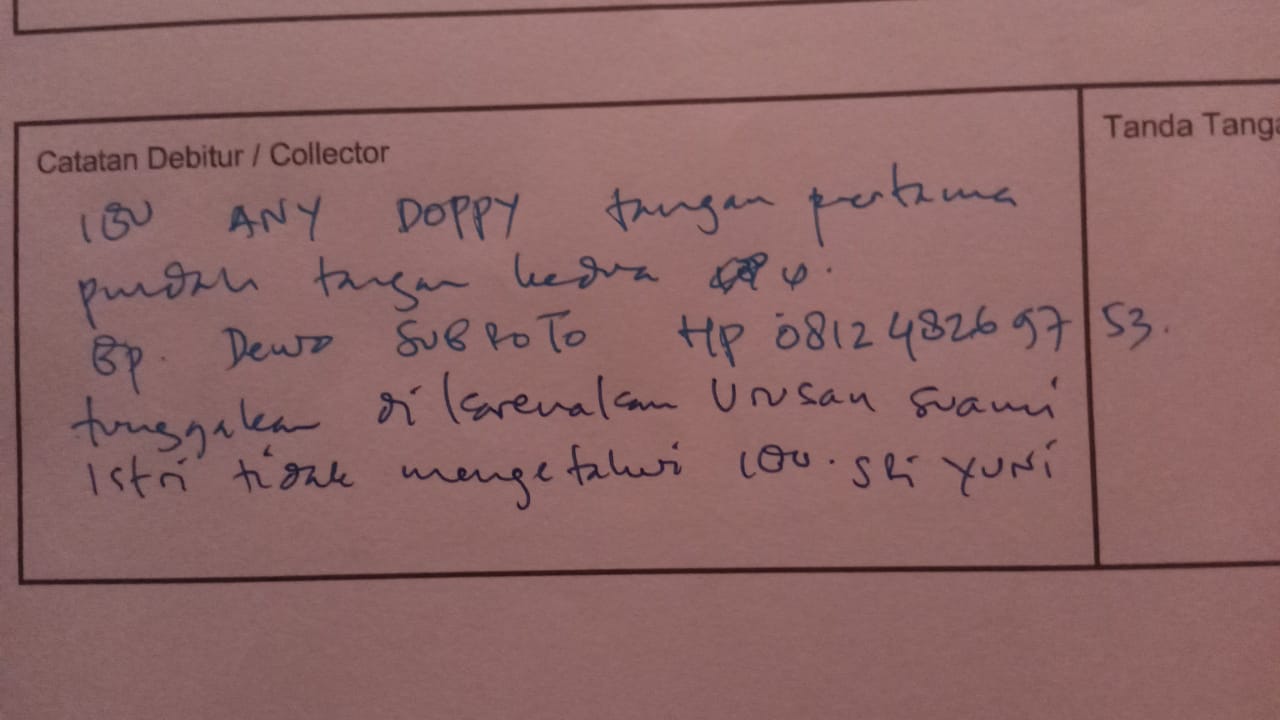 Catatan Debitur / Collector
Tanda Tanga
IBU ANY DOPPY tangan pertama
pindah tangan kedua
Bp. Dewo SUBROTO HP 0812 4826 97 53.
tunggakan di karenakan Urusan suami
Istri tidak mengetahui ibu. SRi YUNi